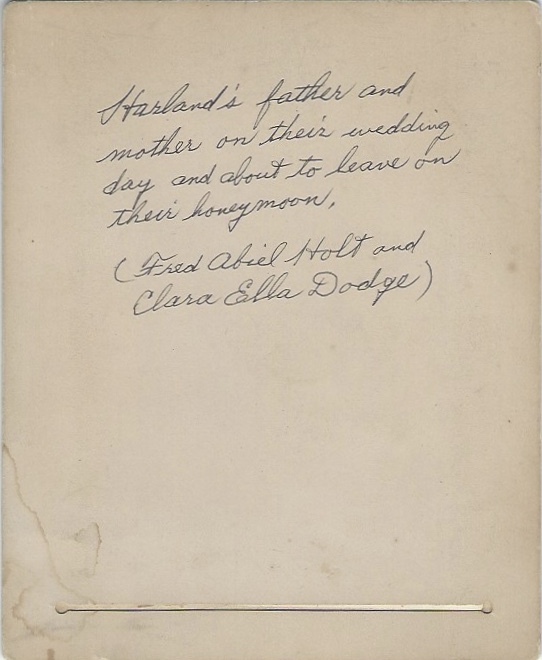 Harland's father and
mother on their wedding
day and about to leave on
their honeymoon.
(Fred Abiel Holt and
Clara Ella Dodge)